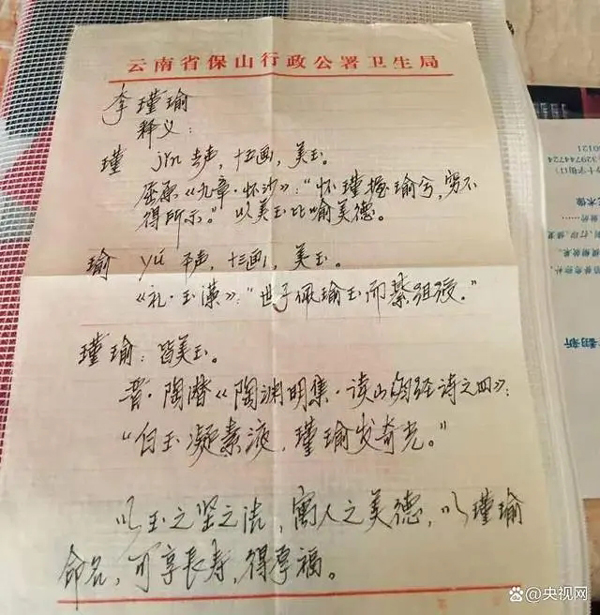 云南省保山行政公署卫生局
李瑾瑜
释义：
瑾 jǐn 去声，十五画，美玉。
屈原《九章·怀沙》："怀瑾握瑜兮，穷不
得所示。"以美玉比喻美德。
瑜 yú 平声，十三画，美玉。
《礼·玉藻》："世子佩瑜玉而綦组绶。"
瑾瑜：皆美玉。
晋·陶潜《陶渊明集·读山海经诗之四》：
"白玉凝素液，瑾瑜发奇光。"
以玉之坚之洁，寓人之美德，以瑾瑜
命名，可享长寿，得厚福。
60121
329744724
十字甸口)
艺术像
翻新
央视网